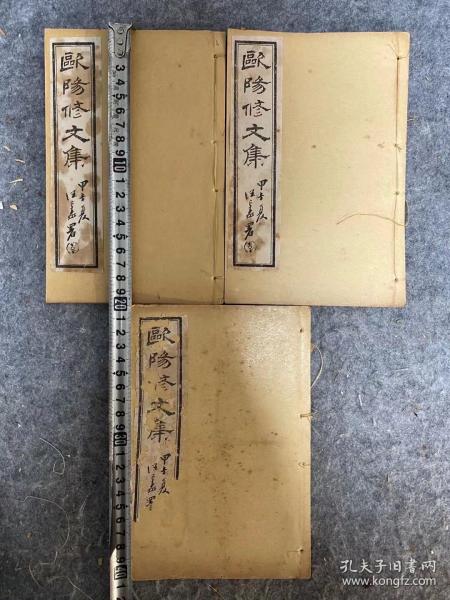 歐陽修文集
甲
歐陽修文集
甲
歐陽修文集
甲
3 4 5 6 7 8 9 10 1 2 3 4 5 6 7 8 9 20 1 2 3 4 5 6 7 8 9 30 1 2 3 4 5 6 7 8 9 40
孔夫子旧书网
www.kongfz.com